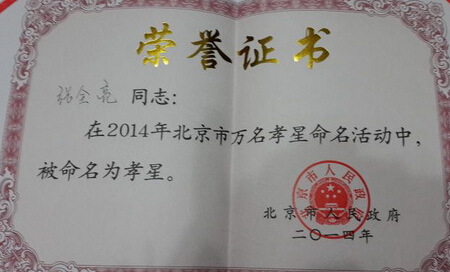 荣誉证书
张会亮 同志:
在2014年北京市万名孝星命名活动中,
被命名为孝星。
北京市人民政府
北京市人民政府
二〇一四年